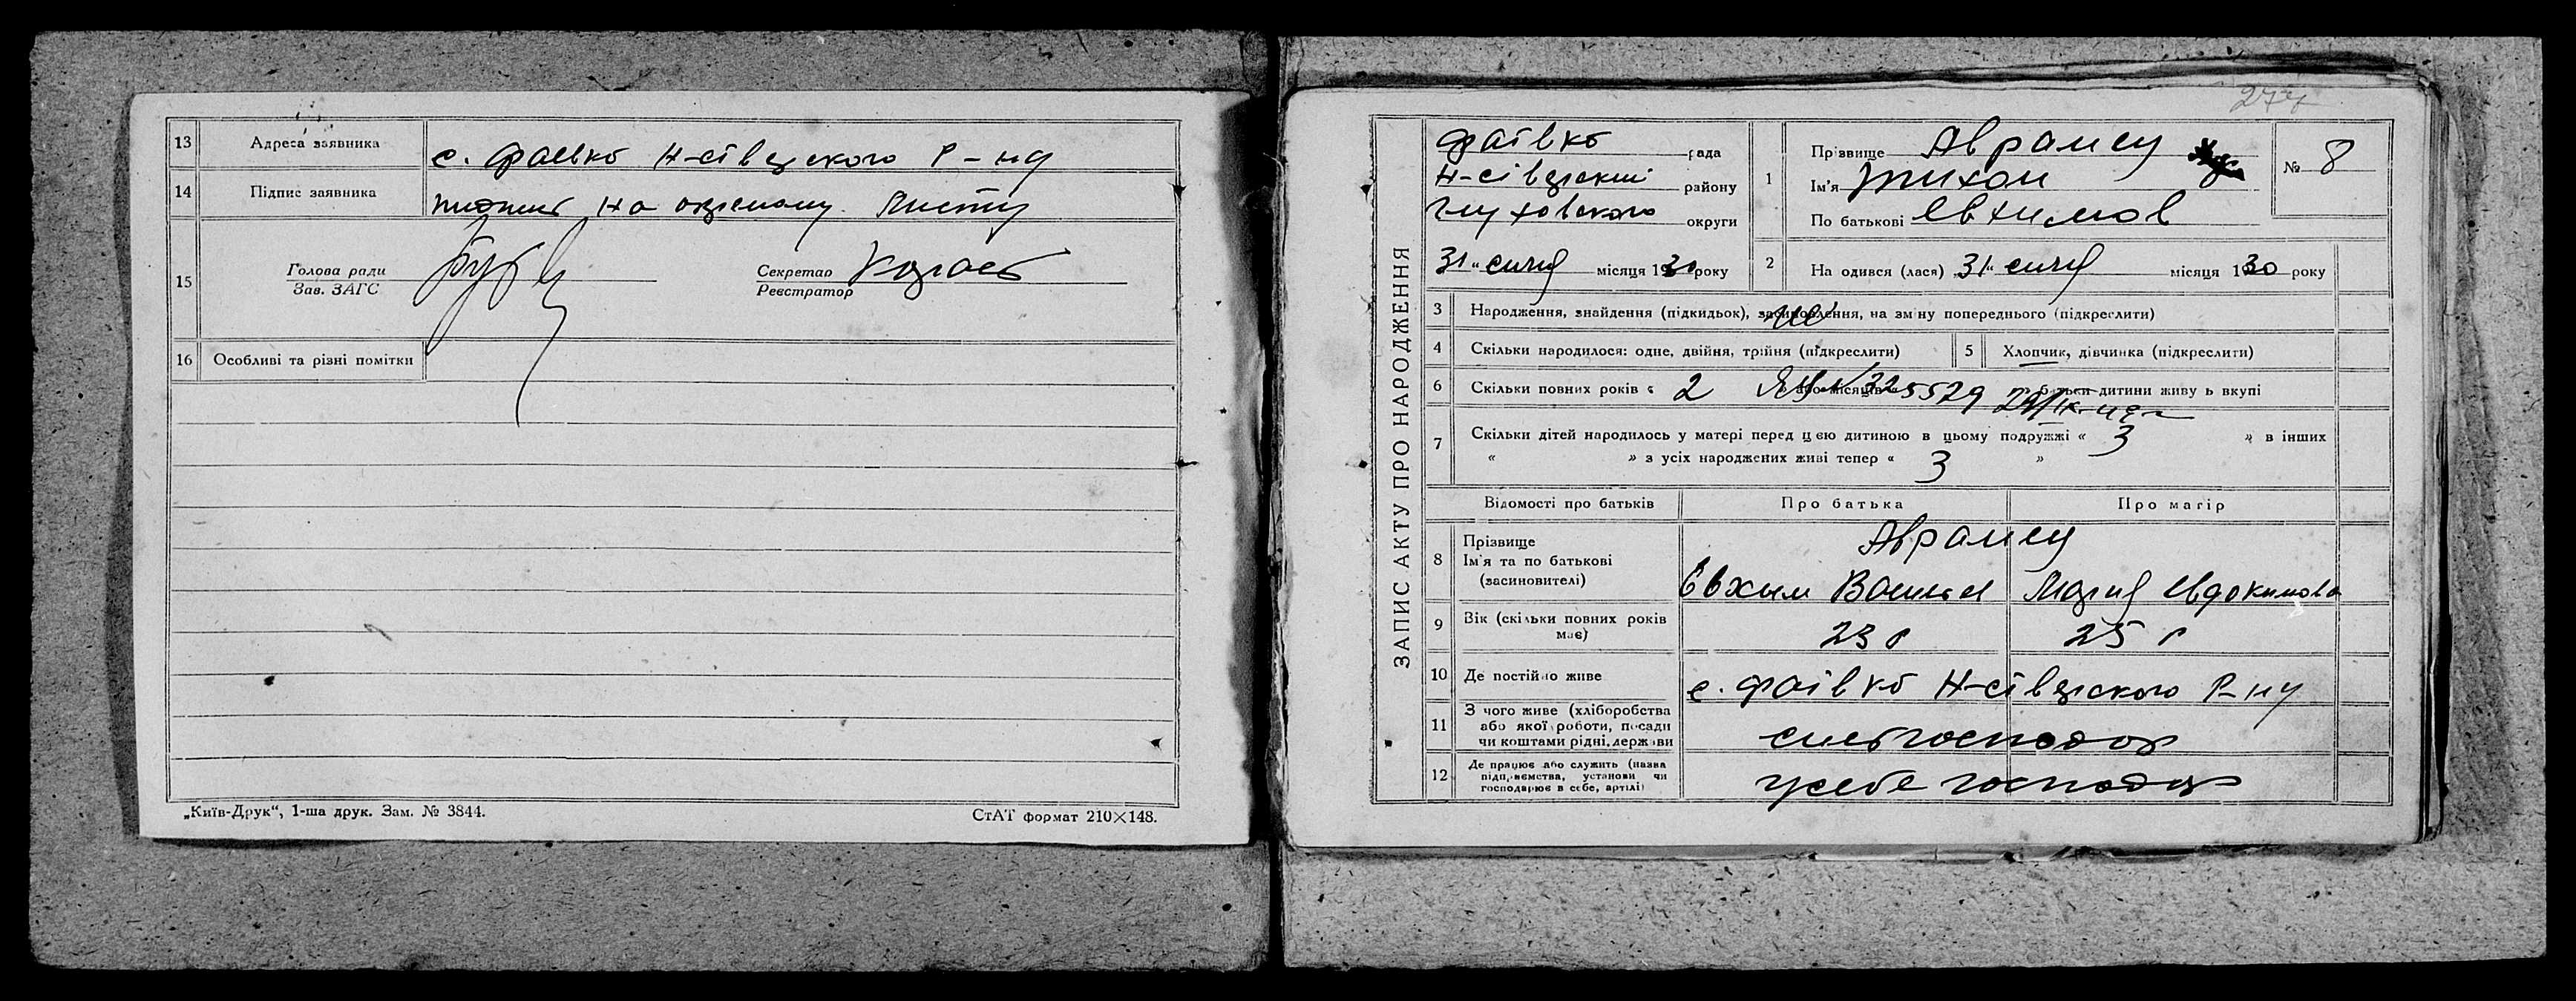 13 Адреса заявника с. Фаївка Н-сіверского Р-ну
14 Підпис заявника на окремому листу
15 Голова ради
Зав. ЗАГС
Секретар
Реєстратор
16 Особливі та різні помітки
„Київ-Друк“, 1-ша друк. Зам. № 3844.
СтАТ формат 210×148.
ЗАПИС АКТУ ПРО НАРОДЖЕННЯ
Фаївка рада
Н-сіверский району
Глуховского округи
31" січня місяця 1930 року
1 Прізвище Аврамец
Ім'я Тихон
По батькові Евхимов
№ 8
2 Народився (лася) 31" січня місяця 1930 року
3 Народження, знайдення (підкидьок), засиновлення, на зміну попереднього (підкреслити)
4 Скільки народилося: одне, двійня, трійня (підкреслити)
5 Хлопчик, дівчинка (підкреслити)
6 Скільки повних років « 2 або місяців батьки дитини живуть вкупі
7 Скільки дітей народилось у матері перед цією дитиною в цьому подружжі « 3 » в інших
« » з усіх народжених живі тепер « 3 »
Відомості про батьків Про батька Про матір
8 Прізвище Аврамец
Ім'я та по батькові
(засиновителі) Евхим Васильев Мария Евдокимова
9 Вік (скільки повних років має) 23 р 25 р
10 Де постійно живе с. Фаівка Н-сіверского Р-ну
11 З чого живе (хліборобства
або якої роботи, посади
чи коштами рідні, держави
12 Де працює або служить (назва
підприємства, установи чи
господарює в себе, артілі) у себе